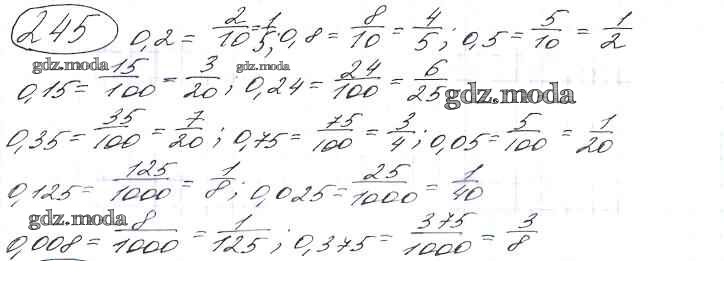 245 0,2 = 2/10 = 1/5; 0,8 = 8/10 = 4/5; 0,5 = 5/10 = 1/2
gdz.moda gdz.moda
0,15 = 15/100 = 3/20; 0,24 = 24/100 = 6/25 gdz.moda
0,35 = 35/100 = 7/20; 0,75 = 75/100 = 3/4; 0,05 = 5/100 = 1/20
0,125 = 125/1000 = 1/8; 0,025 = 25/1000 = 1/40
gdz.moda
0,008 = 8/1000 = 1/125; 0,375 = 375/1000 = 3/8